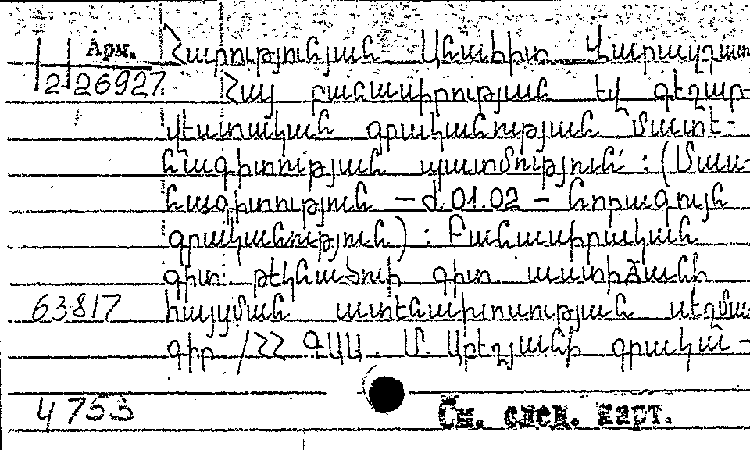 Арм.
2 26927
Հարությունյան Անահիտ Վարազդատ
Հայ բանասիրության եվ գեղար-
վեստական գրականության մատե-
նագիտության պատմություն: (Մաս-
նագիտություն – Ժ.01.02 – նորագույն
գրականություն): Բանասիրական
գիտ. թեկնածուի գիտ. աստիճանի
63817 հայցման ատենախոսության սեղմա-
գիր /ՀՀ ԳԱԱ. Մ. Աբեղյանի գրական-
4753
См. след. карт.